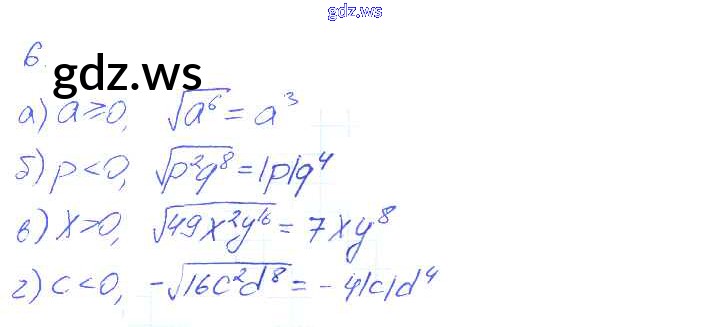 gdz.ws
6.
gdz.ws
а) a ≥ 0, √a⁶ = a³
б) p < 0, √p²q⁸ = |p|q⁴
в) x > 0, √49x²y¹⁶ = 7xy⁸
г) c < 0, -√16c²d⁸ = -4|c|d⁴